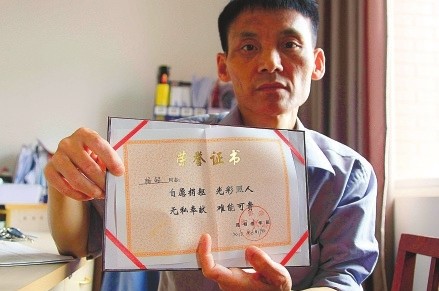 荣誉证书
同志:
自愿捐躯 光彩照人
无私奉献 难能可贵